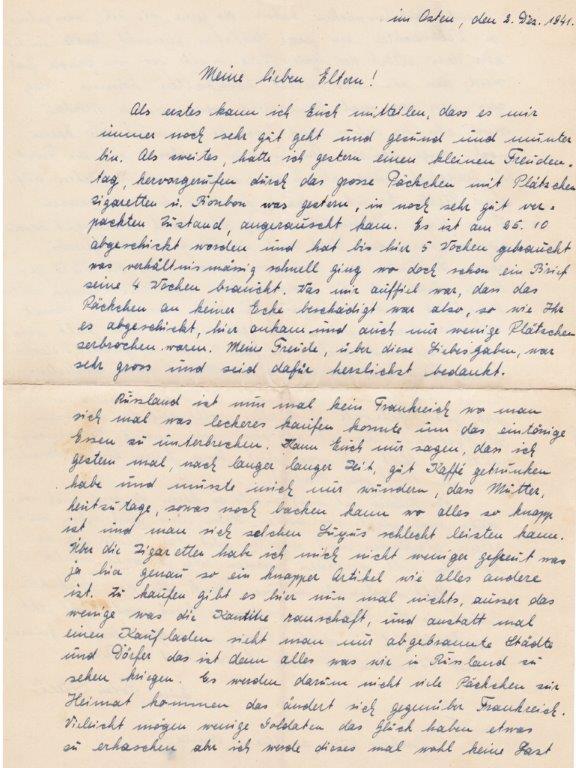 im Osten, den 2. Dez. 1941.
Meine lieben Eltern!
Als erstes kann ich Euch mitteilen, dass es mir
immer noch sehr gut geht und gesund und munter
bin. Als zweites, hatte ich gestern einen kleinen Freuden-
tag, hervorgerufen durch das grosse Päckchen mit Plätschen
Zigaretten u. Bonbon was gestern, in noch sehr gut ver-
packten Zustand, angerauscht kam. Es ist am 25.10
abgeschickt worden und hat bis hier 5 Wochen gebraucht
was verhältnismässig schnell ging wo doch schon ein Brief
seine 4 Wochen braucht. Was mir auffiel war, dass das
Päckchen an keiner Ecke beschädigt war also, so wie Ihr
es abgeschickt, hier ankam und auch nur wenige Plätschen
zerbrochen waren. Meine Freude, über diese Liebesgaben, war
sehr gross und seid dafür herzlichst bedankt.
Russland ist nun mal kein Frankreich wo man
sich mal was leckeres kaufen konnte um das eintönige
Essen zu unterbrechen. Kann Euch nur sagen, dass ich
gestern mal, nach langer langer Zeit, gut Kaffé getrunken
habe und musste mich nur wundern, dass Mutter,
heutzutage, sowas noch backen kann wo alles so knapp
ist und man sich solchen Luxus schlecht leisten kann.
Über die Zigaretten habe ich mich nicht weniger gefreut was
ja hier genau so ein knapper Artikel wie alles andere
ist. Zu kaufen gibt es hier nun mal nichts, ausser das
wenige was die Kantine ranschaft, und anstatt mal
einen Kaufladen sieht man nur abgebrannte Städte
und Dörfer das ist denn alles was wir in Russland zu
sehen kriegen. Es werden darum nicht viele Päckchen zur
Heimat kommen das ändert sich gegenüber Frankreich.
Vielleicht mögen wenige Soldaten das Glück haben etwas
zu erhaschen aber ich werde dieses mal wohl keine Last